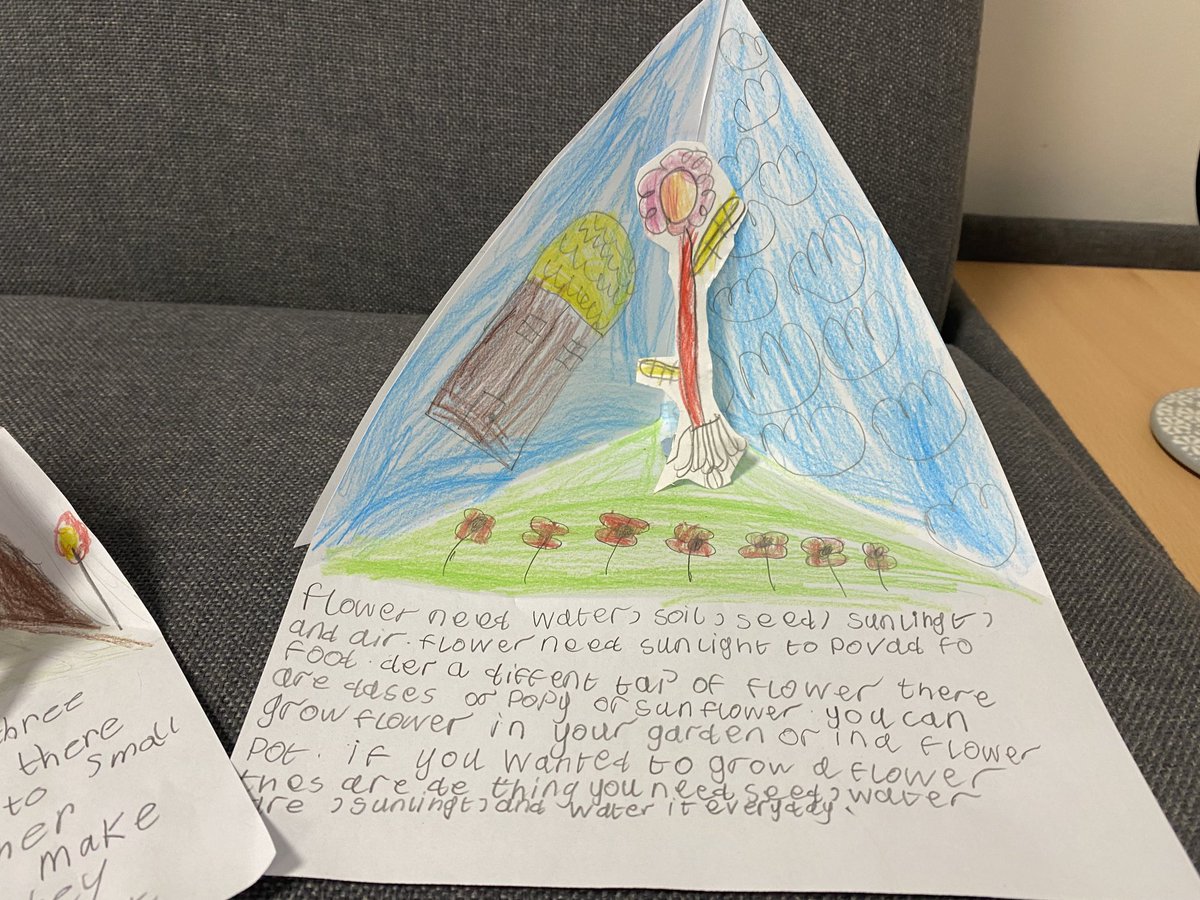 flower need water, soil, seed, sunlingt,
and air. flower need sunlight to povad fo
food. der a diffent tap of flower there
are dases or popy or sunflower. you can
grow flower in your garden or ind flower
pot. if you wanted to grow a flower
thes are de thing you need seed, water
are, sunlingt, and water it everyday.
three
there
small
to
make